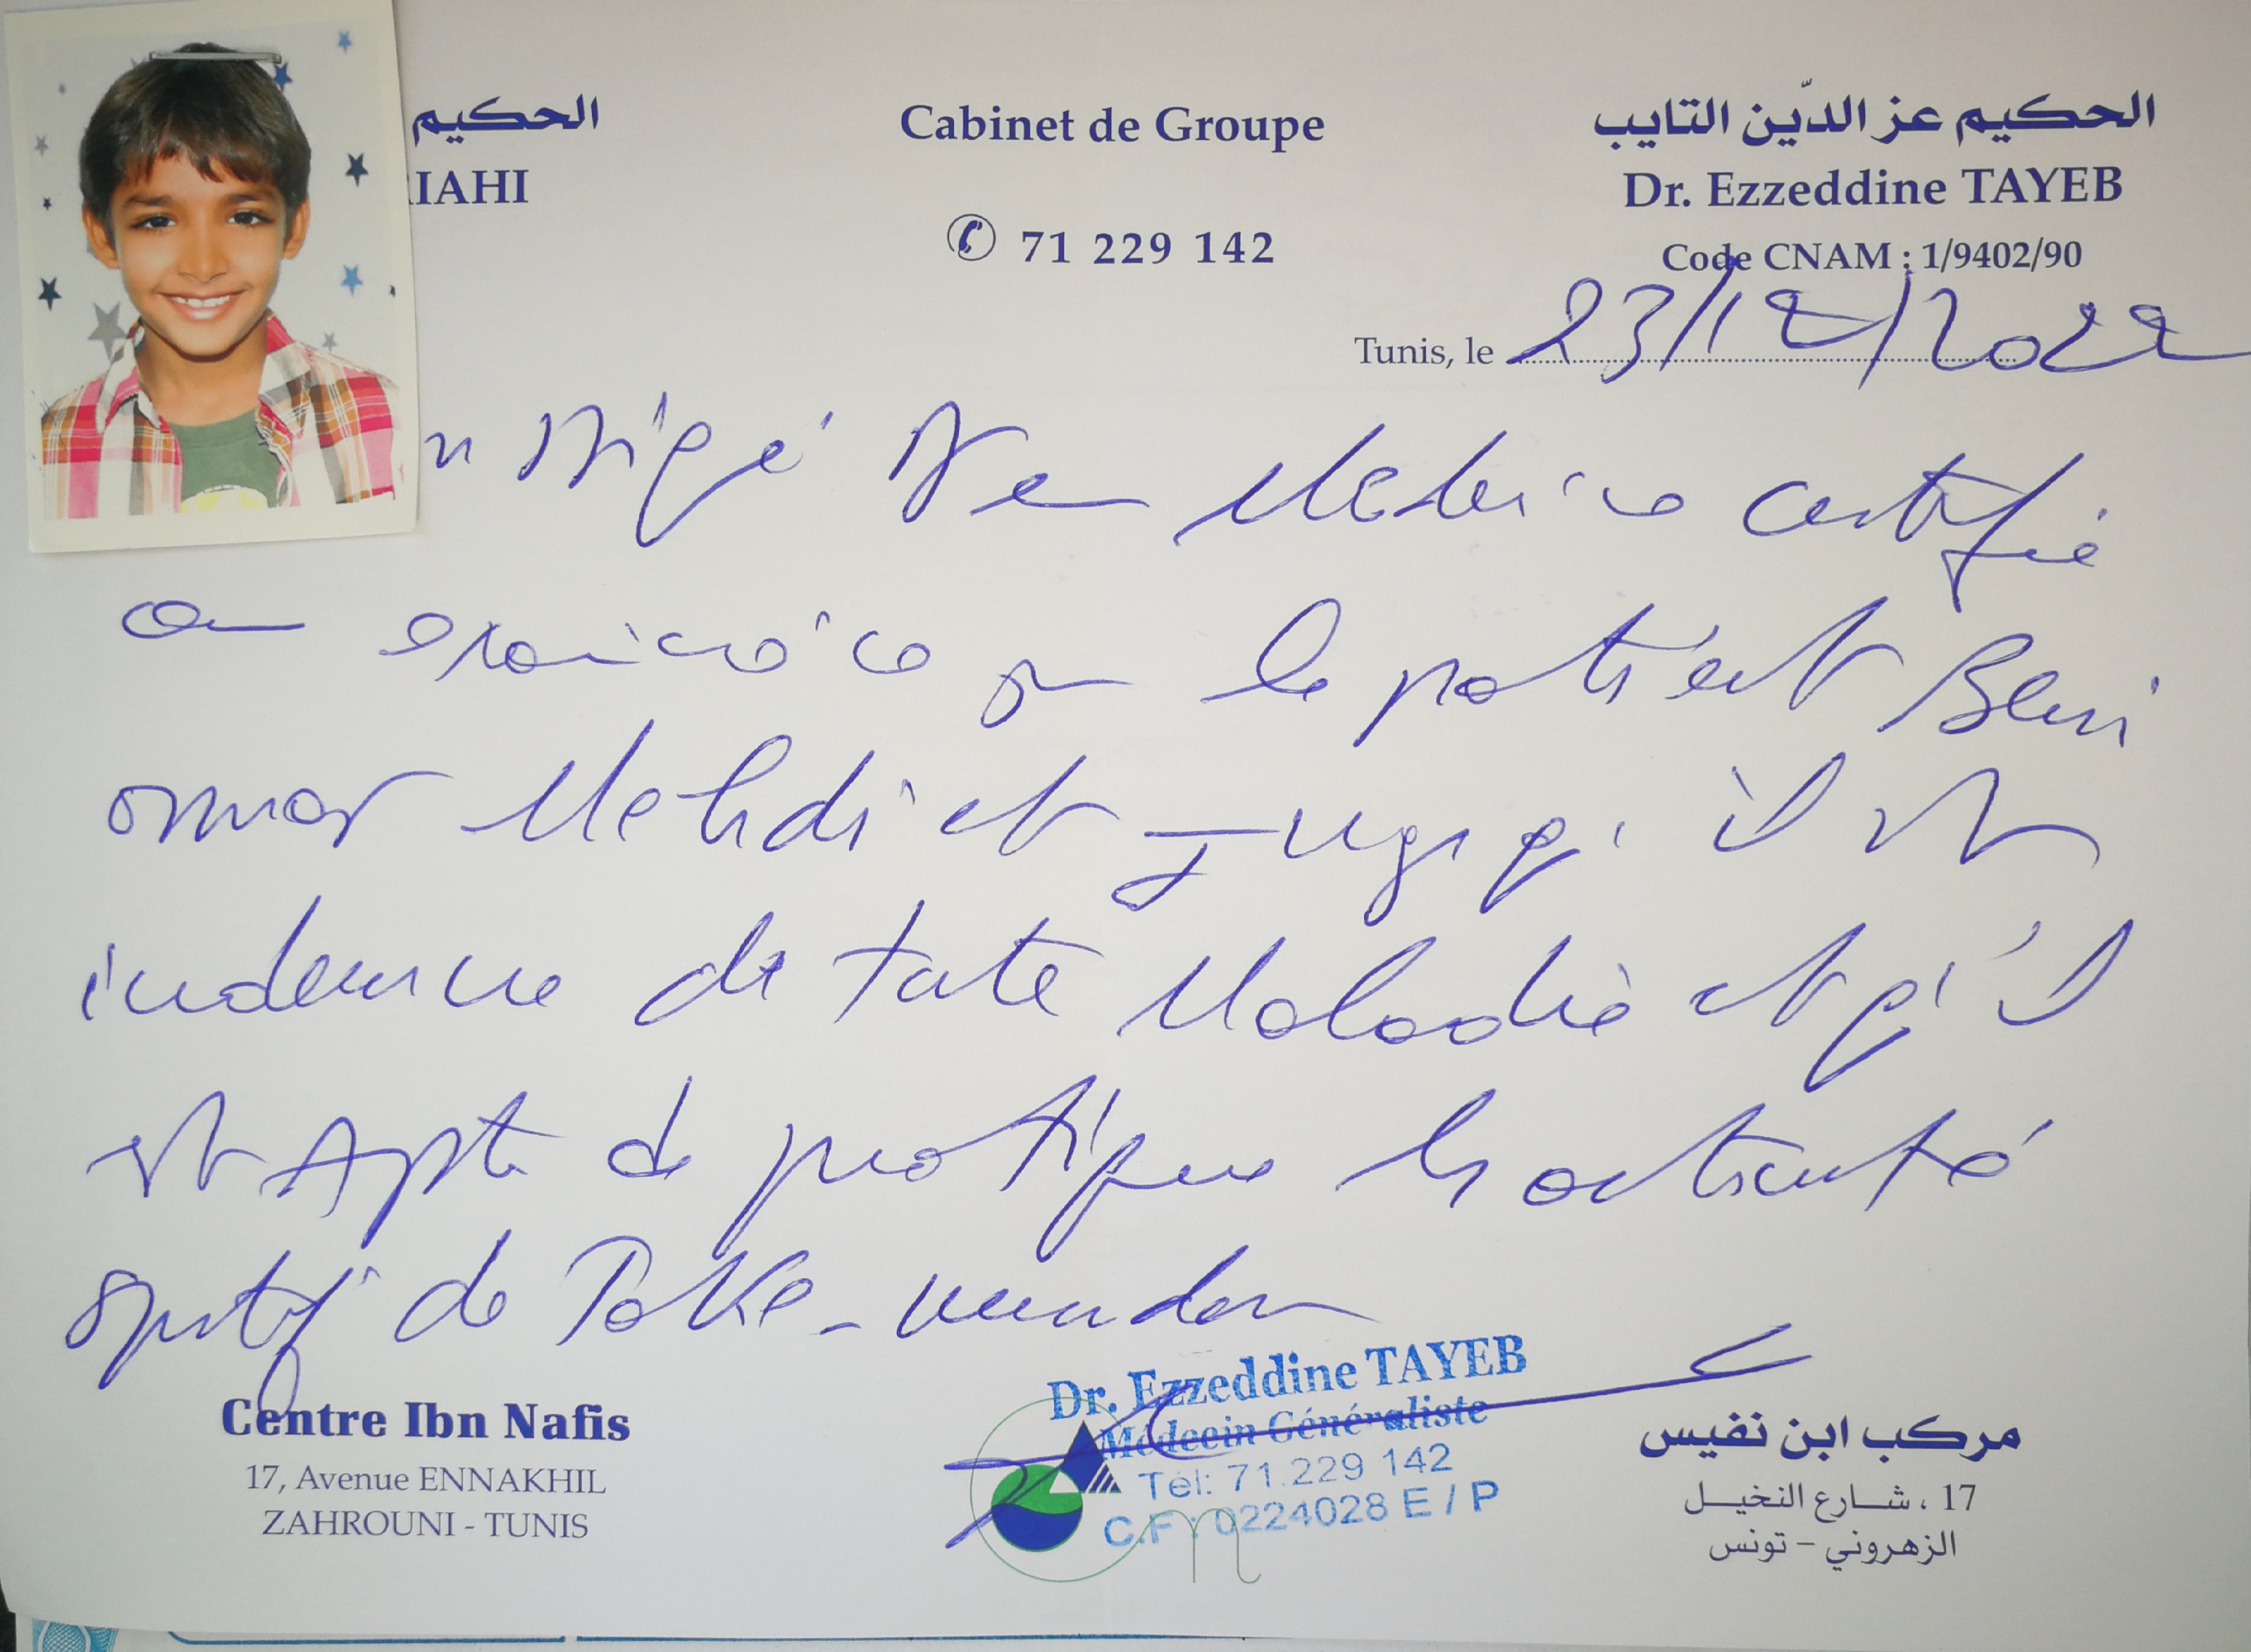 الحكيم
IAHI
Cabinet de Groupe
71 229 142
الحكيم عز الدّين التايب
Dr. Ezzeddine TAYEB
Code CNAM : 1/9402/90
Tunis, le 23/12/2022
Medecin certifie
que le patient Beni
omar Mehdi et qu'il est
indemne de toute Maladie et qu'il
est Apte de pratique activité
sportif de
Centre Ibn Nafis
17, Avenue ENNAKHIL
ZAHROUNI - TUNIS
Dr. Ezzeddine TAYEB
Médecin Généraliste
Tél: 71.229 142
C.F : 0224028 E / P
مركب ابن نفيس
17 ، شارع النخيل
الزهروني - تونس